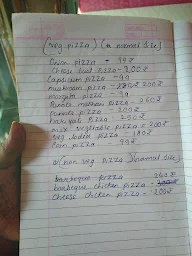 (veg pizza) (a normal size)
Onion pizza - 90₹
Cheese bust pizza - 200₹
Capsicum pizza - 99
mushroom pizza - 200₹
margrita pizza - 99
Paneer makhani pizza - 250₹
Paneer pizza - 200₹
hariyali pizza - 250₹
mix vegetable pizza - 200₹
veg loded pizza - 180₹
Corn pizza 99₹
(non veg pizza) (normal size)
barbeque pizza 250₹
barbeque chicken pizza -
cheese chicken pizza - 200₹